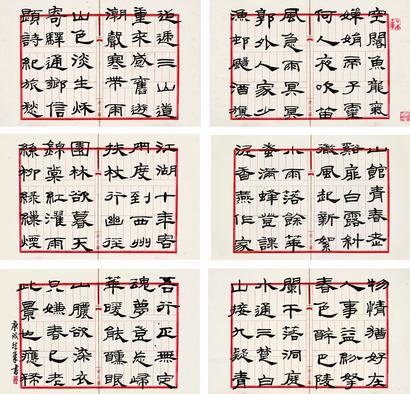 空闊魚龍氣
嬋娟帝子靈
何人夜吹笛
風急雨冥冥
郭外人家少
漁邨颺酒旗
迢遞三山道
重來感舊遊
潮聲寒帶雨
山色淡生秋
寄驛通鄉信
題詩紀旅愁
山館青春
谿扉白露
微風起新絮
小雨落餘華
蜜滿蜂登課
泥香燕作家
江湖十年客
兩度到西州
扶杖行幽徑
園林欲暮天
錦棠紅濯雨
絲柳綠繰煙
物情猶好在
人事益紛拏
春色醉巴陵
闌干落洞庭
水通三楚白
山接九疑青
吾行正無定
魂夢豈忘歸
華暖能醺眼
山濃欲染衣
只嫌春已老
此景也應稀
庚戌書